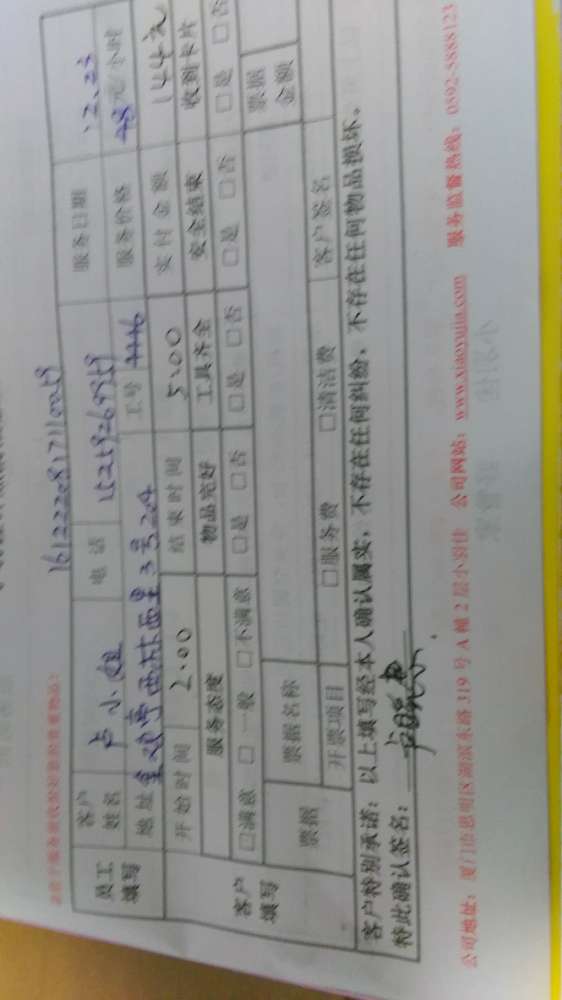 1612220817110059
客户姓名 卢小姐 电话 服务日期 12.22
员工填写
地址 西林西里3号204 工号 服务价格 48元/小时
开始时间 2:00 结束时间 5:00 实付金额 144元
客户填写
服务态度 物品完好 工具齐全 安全结束 收到卡片
□满意 □一般 □不满意 □是 □否 □是 □否 □是 □否 □是 □否
票据 票据名称 票据金额
开票项目 □服务费 □清洁费 客户签名
客户特别承诺：以上填写经本人确认属实，不存在任何纠纷，不存在任何物品损坏。
特此确认签名：
公司地址：厦门市思明区湖滨东路319号A幢2层小羽佳 公司网站：www.xiaoyujia.com 服务监督热线：0592-5888123